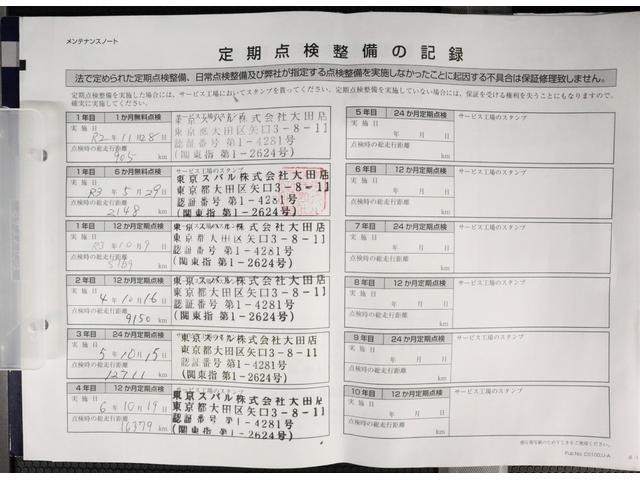 メンテナンスノート
定期点検整備の記録
法で定められた定期点検整備、日常点検整備及び弊社が指定する点検整備を実施しなかったことに起因する不具合は保証修理致しません。
定期点検整備を実施した場合には、サービス工場においてスタンプを貰ってください。定期点検整備を実施していない場合には、保証を受ける権利を失うこともになりますので、
確実に実施してください。
1年目 1か月無料点検
実施日
R2年11月28日
点検時の総走行距離
905 km
東京スバル株式会社大田店
東京都大田区矢口3-8-11
認証番号 第1-4281号
(関東指 第1-2624号)
1年目 6か月無料点検 サービス工場のスタンプ
実施日
R3年5月29日
点検時の総走行距離
2148 km
東京スバル株式会社大田店
東京都大田区矢口3-8-11
認証番号 第1-4281号
(関東指 第1-2624号)
1年目 12か月定期点検
実施日
R3年10月9日
点検時の総走行距離
km
東京スバル株式会社大田店
東京都大田区矢口3-8-11
認証番号 第1-4281号
(関東指 第1-2624号)
2年目 12か月定期点検
実施日
4年10月16日
点検時の総走行距離
9150 km
東京スバル株式会社大田店
東京都大田区矢口3-8-11
認証番号 第1-4281号
(関東指 第1-2624号)
3年目 24か月定期点検
実施日
5年10月15日
点検時の総走行距離
12711 km
東京スバル株式会社大田店
東京都大田区矢口3-8-11
認証番号 第1-4281号
(関東指 第1-2624号)
4年目 12か月定期点検 サービス工場のスタンプ
実施日
6年10月19日
点検時の総走行距離
16379 km
東京スバル株式会社大田店
東京都大田区矢口3-8-11
認証番号 第1-4281号
(関東指 第1-2624号)
5年目 24か月定期点検 サービス工場のスタンプ
実施日
年 月 日
点検時の総走行距離
km
6年目 12か月定期点検 サービス工場のスタンプ
実施日
年 月 日
点検時の総走行距離
km
7年目 24か月定期点検 サービス工場のスタンプ
実施日
年 月 日
点検時の総走行距離
km
8年目 12か月定期点検 サービス工場のスタンプ
実施日
年 月 日
点検時の総走行距離
km
9年目 24か月定期点検 サービス工場のスタンプ
実施日
年 月 日
点検時の総走行距離
km
10年目 12か月定期点検 サービス工場のスタンプ
実施日
年 月 日
点検時の総走行距離
km
Pub.No. C0100JJ-A